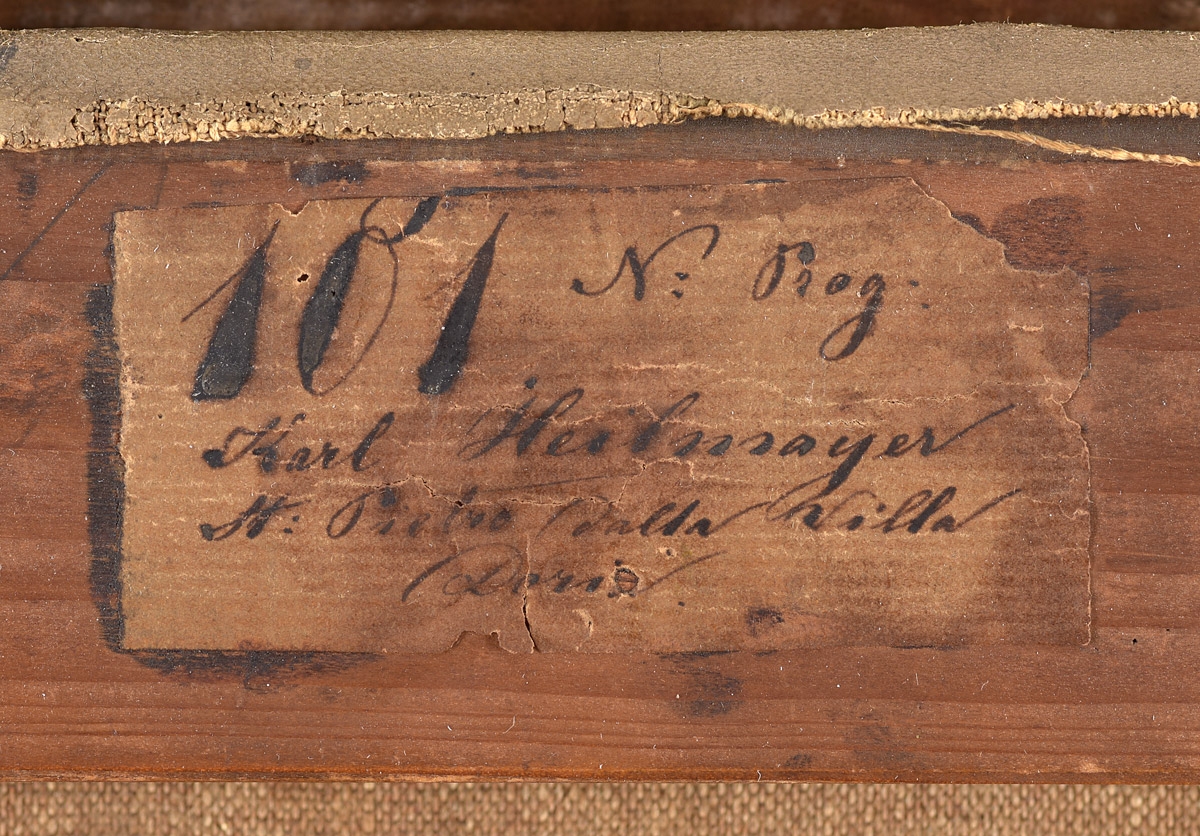 101 N: Prog.
Karl Heilmayer
St: Pietro dalla Villa
Doria.